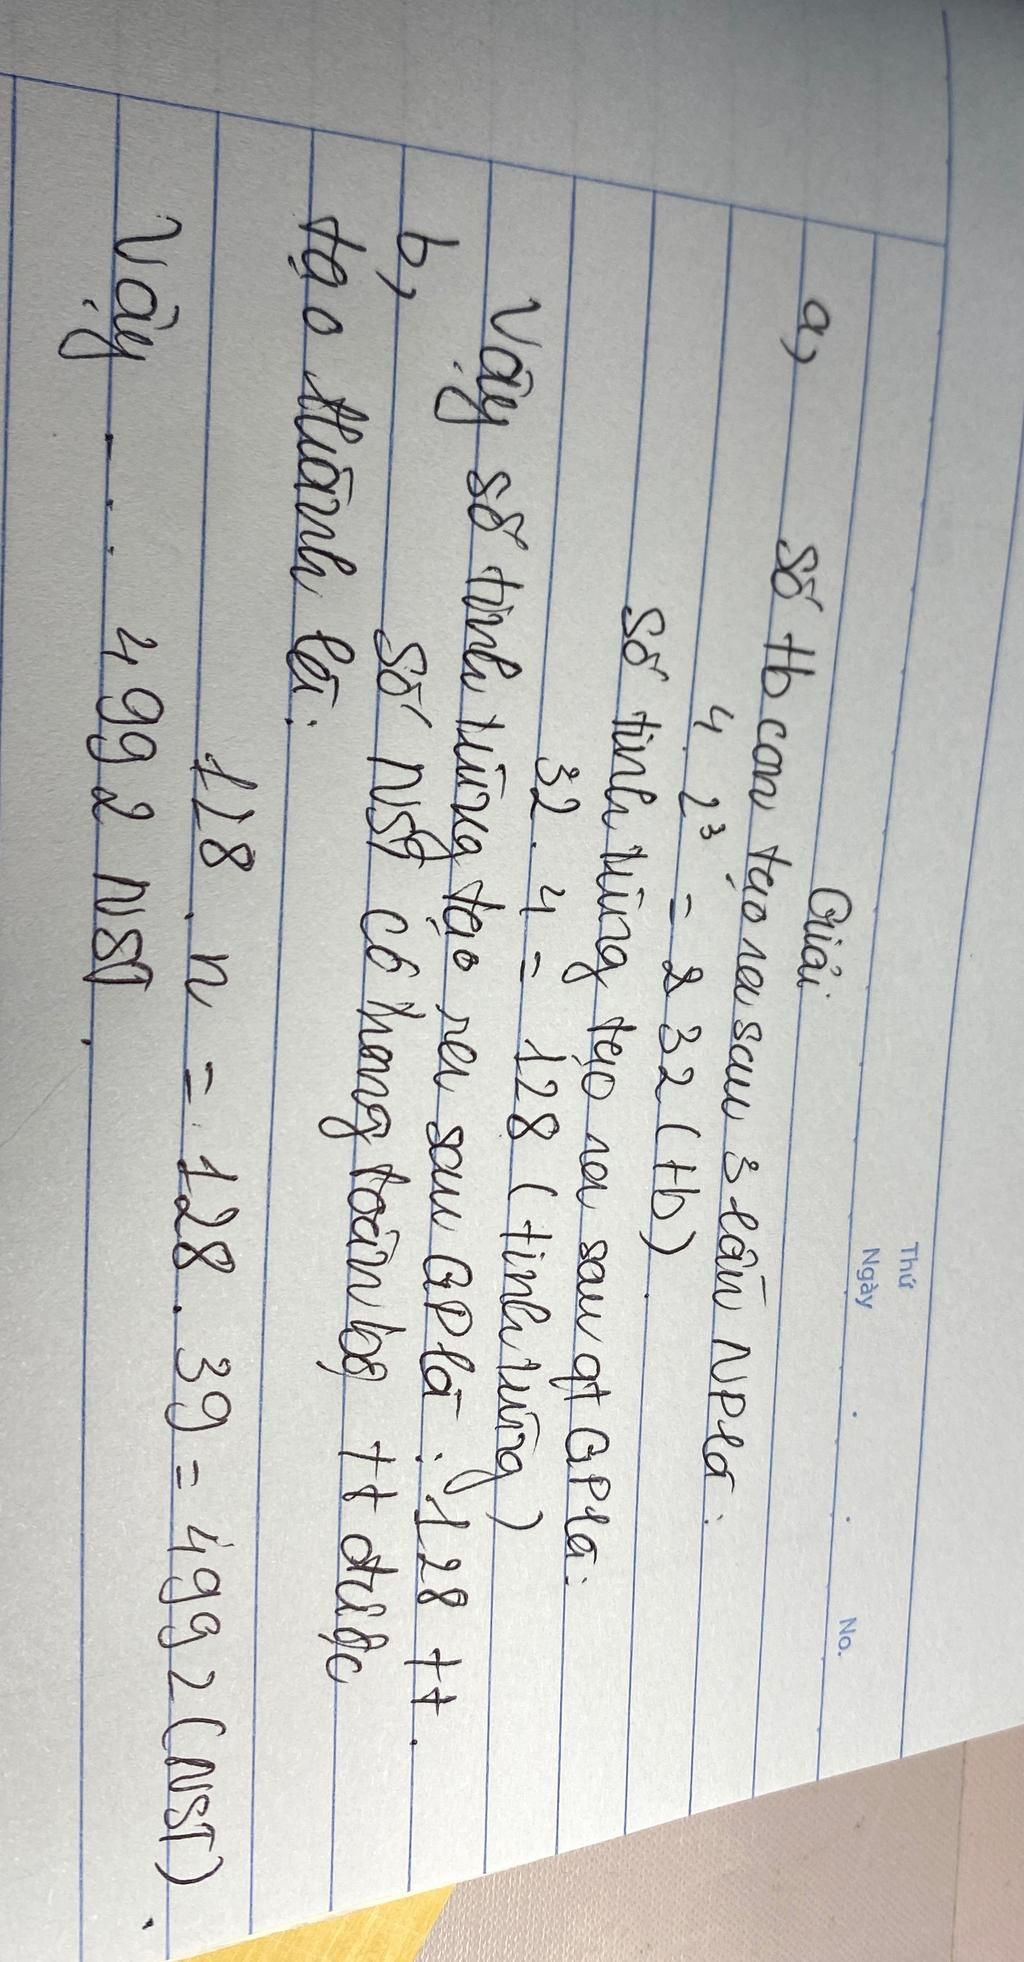 Thứ
Ngày
No.
Giải
a, Số tb con tạo ra sau 3 lần NP là:
4. 2³ = 2 32 (tb)
Số tinh trùng tạo ra sau qt GP là:
32. 4 = 128 (tinh trùng)
Vậy số tinh trùng tạo ra sau GP là: 128 tt.
b, Số NST có trong toàn bộ tt được
tạo thành là:
128 . n = 128 . 39 = 4992 (NST).
Vậy ---. 4992 NST.